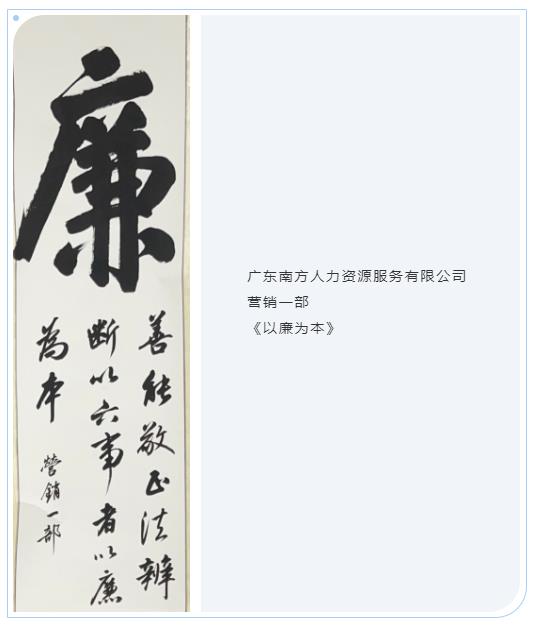 廉
善能敬正法辨
断以六事者以廉
為本
營銷一部
广东南方人力资源服务有限公司
营销一部
《以廉为本》